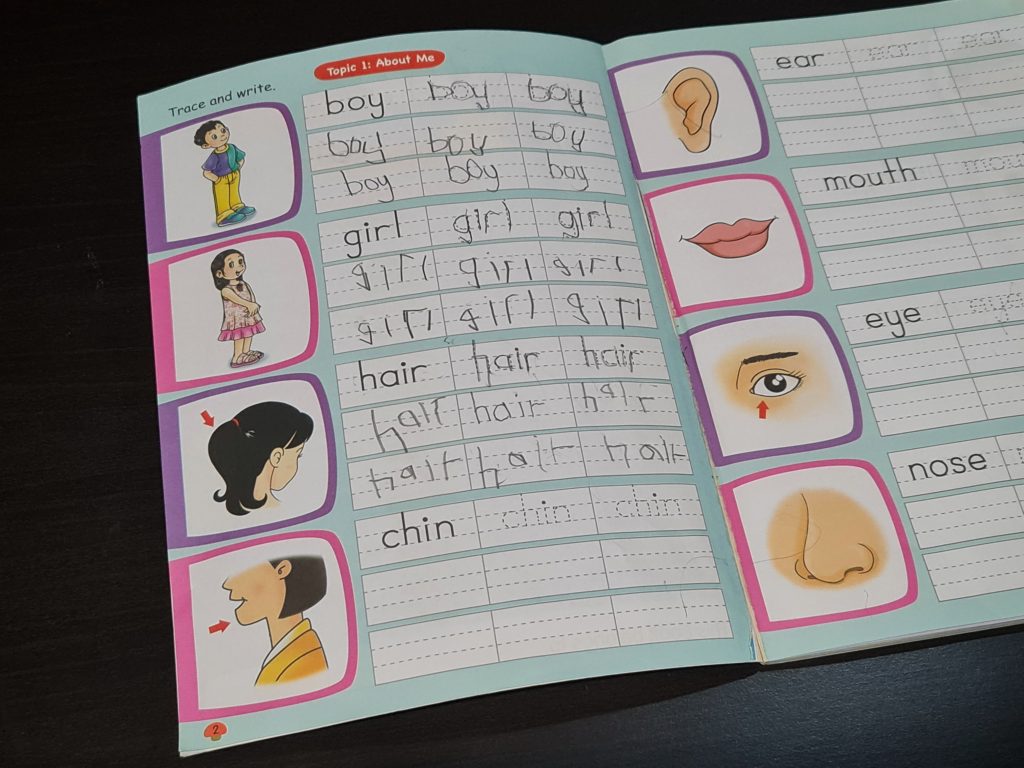 Topic 1: About Me
Trace and write.
boy boy boy
boy boy boy
boy boy boy
girl girl girl
girl girl girl
girl girl girl
hair hair hair
hair hair hair
hair hair hair
chin chin chin
2
ear ear ear
mouth mou
eye eye
nose